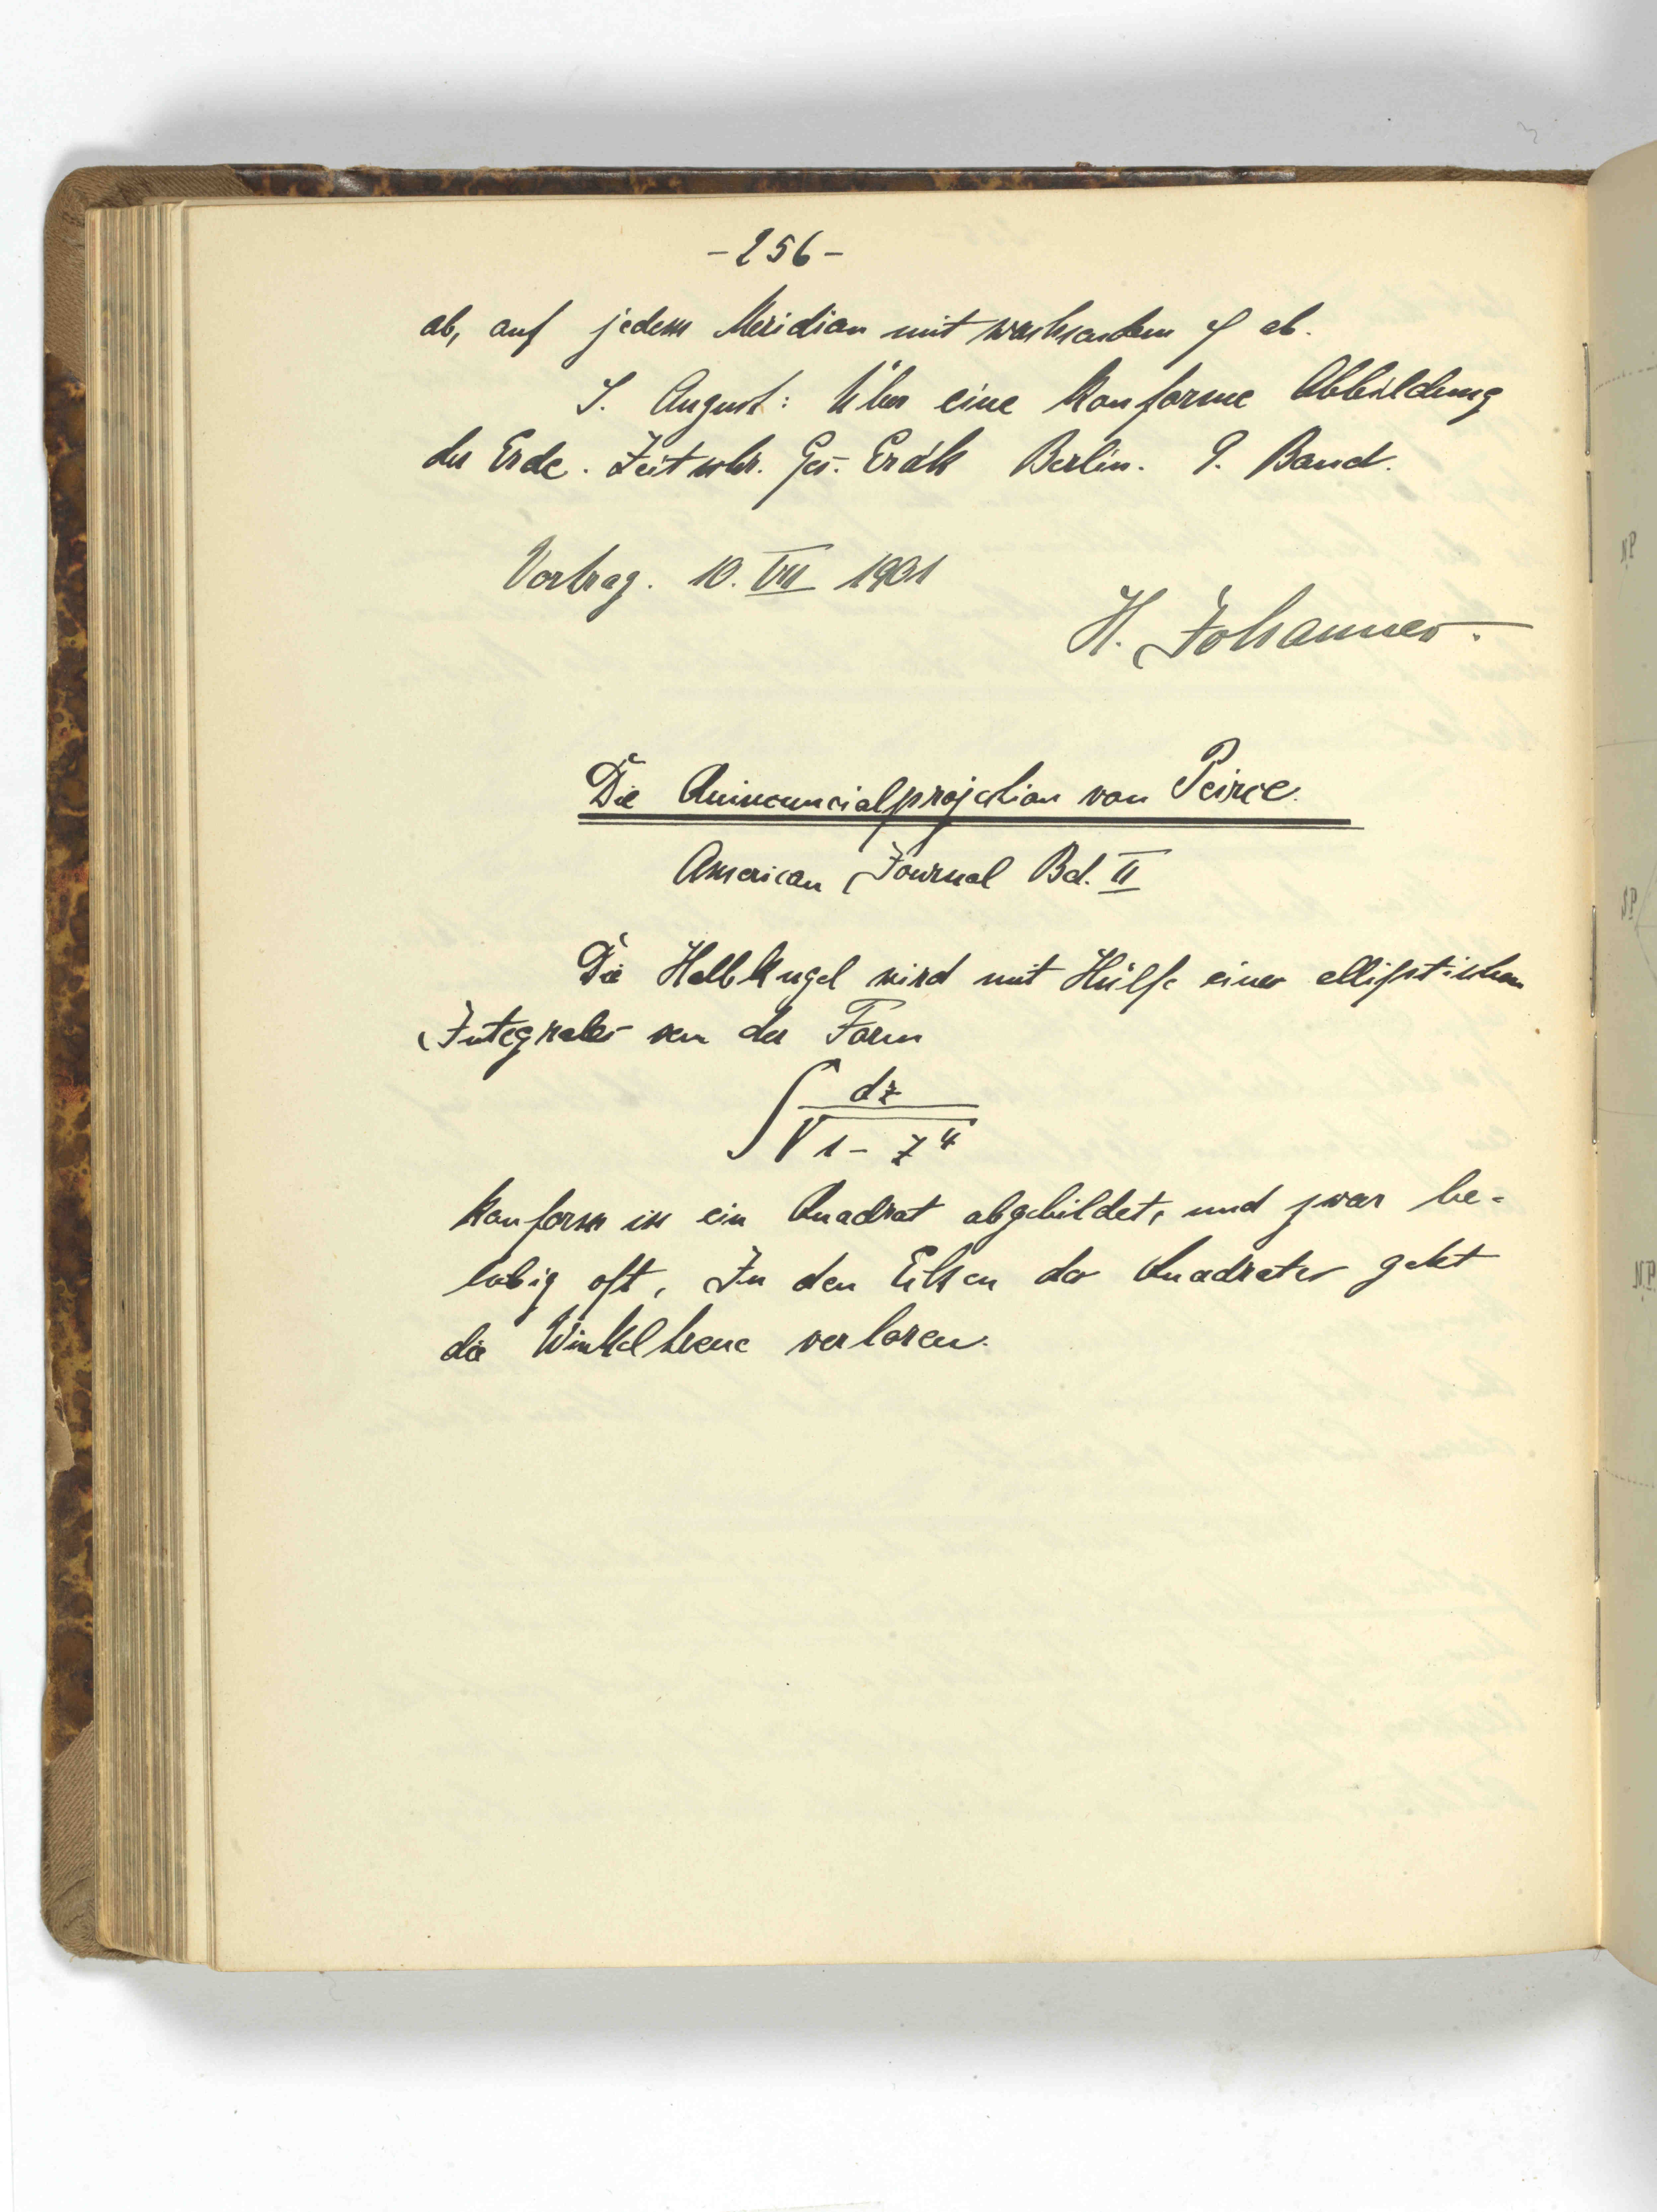 - 256 -
ab, auf jedem Meridian mit wachsendem φ ab.
F. August: Über eine konforme Abbildung
der Erde. Zeitschr. Ges. Erdk Berlin. 9. Band.
Vortrag. 10. VII 1901
H. Johannes.
Die Quincuncialprojektion von Peirce.
American Journal Bd. II
Die Halbkugel wird mit Hülfe eines elliptischen
Integrales von der Form
∫ dz / √1 - z⁴
konform in ein Quadrat abgebildet, und zwar be-
liebig oft, In den Ecken des Quadrates geht
die Winkeltreue verloren.